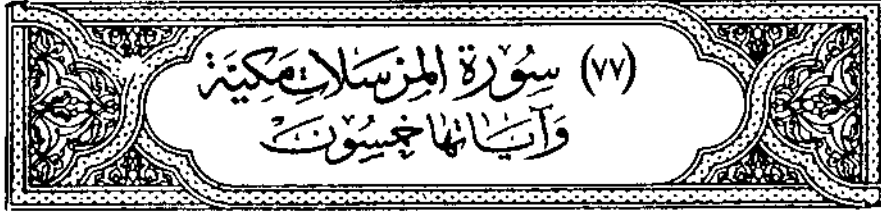 (٧٧) سِوُرَة المرسَلات مَكيَّة
وَآيَاتها خمسُونَ